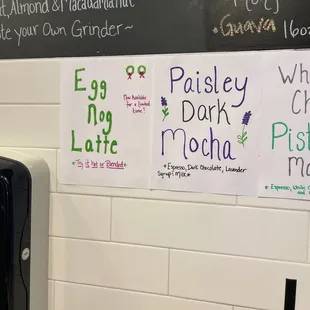 t, Almond & Macadamia nut
te your Own Grinder~
Guava
16oz
Egg
Nog
Latte
Now Available
for a limited
time!
Try it Hot or Blended
Paisley
Dark
Mocha
*Espresso, Dark Chocolate, Lavender
Syrup & Milk*
Wh
Ch
Pist
Mo
*Espresso, White C
and